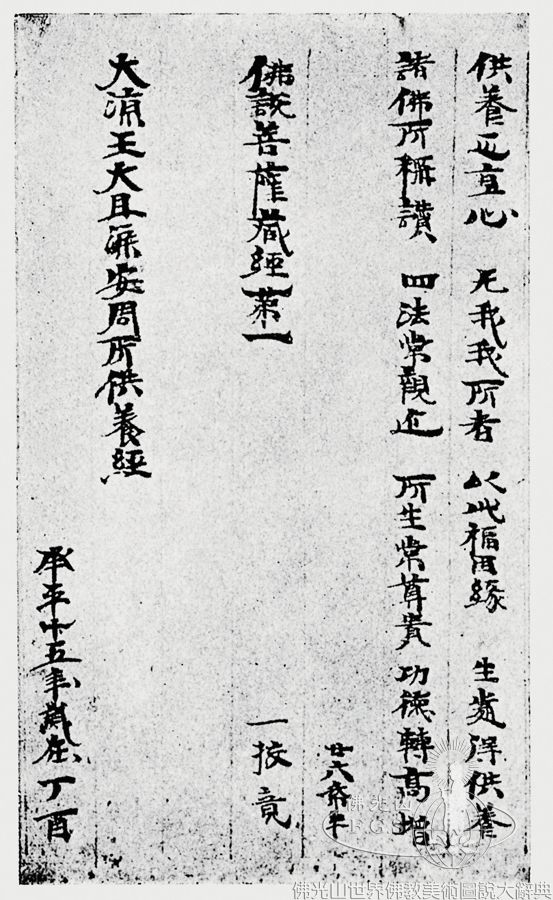 供養正直心 无我我所者 以此福因緣 生處得供養
諸佛所稱讚 四法常親近 所生常尊貴 功德轉高增
廿六帋半
佛說菩薩藏經第一 一挍竟
大涼王大且渠安周所供養經
承平十五年歲在丁酉
佛光山
F.G.S
佛光山世界佛教美術圖說大辭典